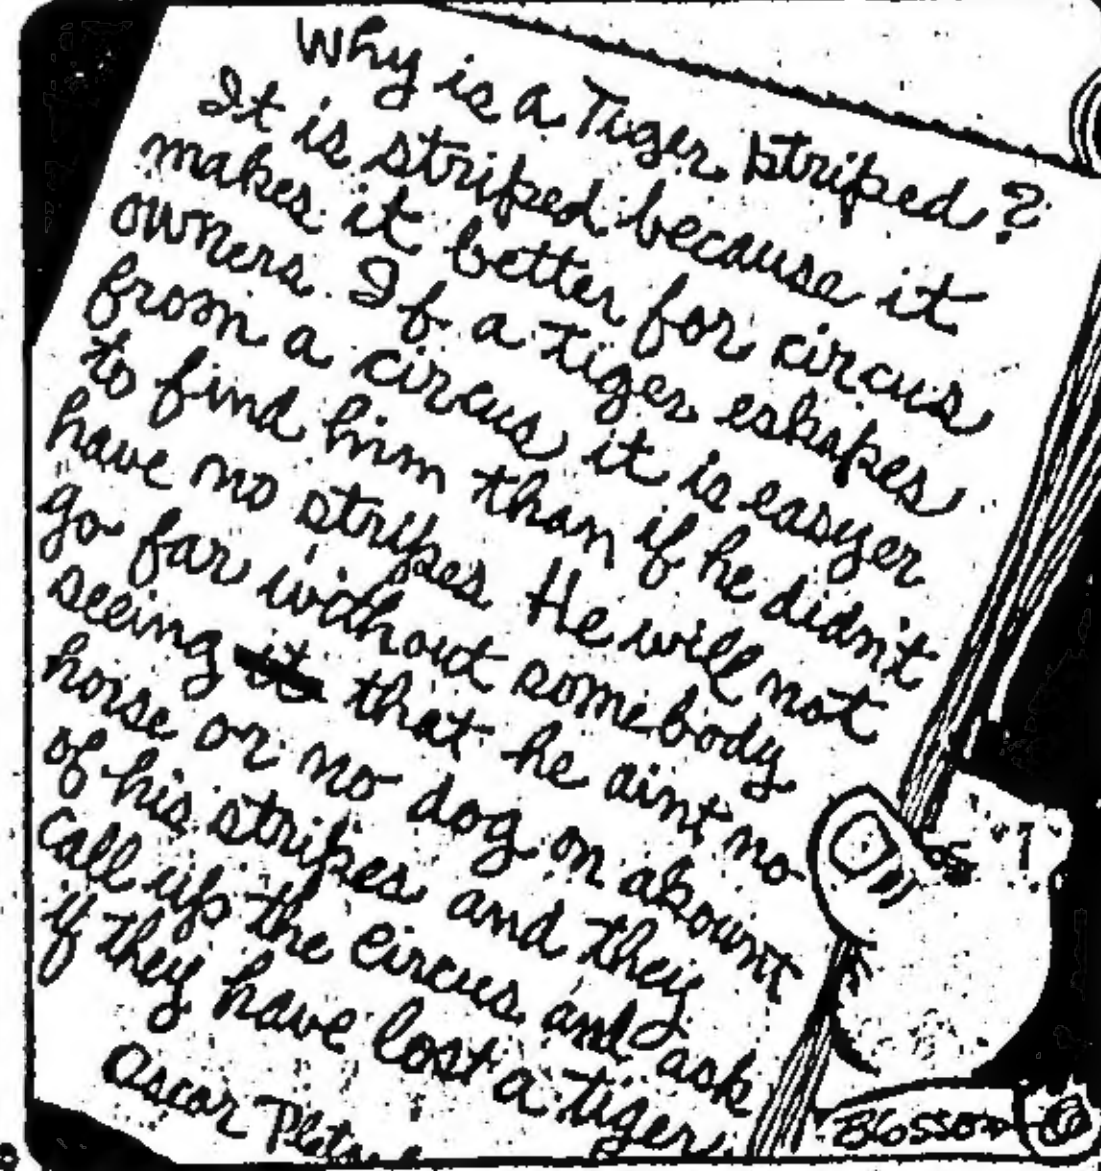 Why is a Tiger striped?
It is striped because it
makes it better for circus
owners. If a tiger eskapes
from a circus it is easyer
to find him than if he didn't
have no stripes. He will not
go far without somebody
seeing it that he aint no
horse or no dog on akownt
of his stripes and they
call up the circus and ask
if they have lost a tiger.
Oscar
Blosson